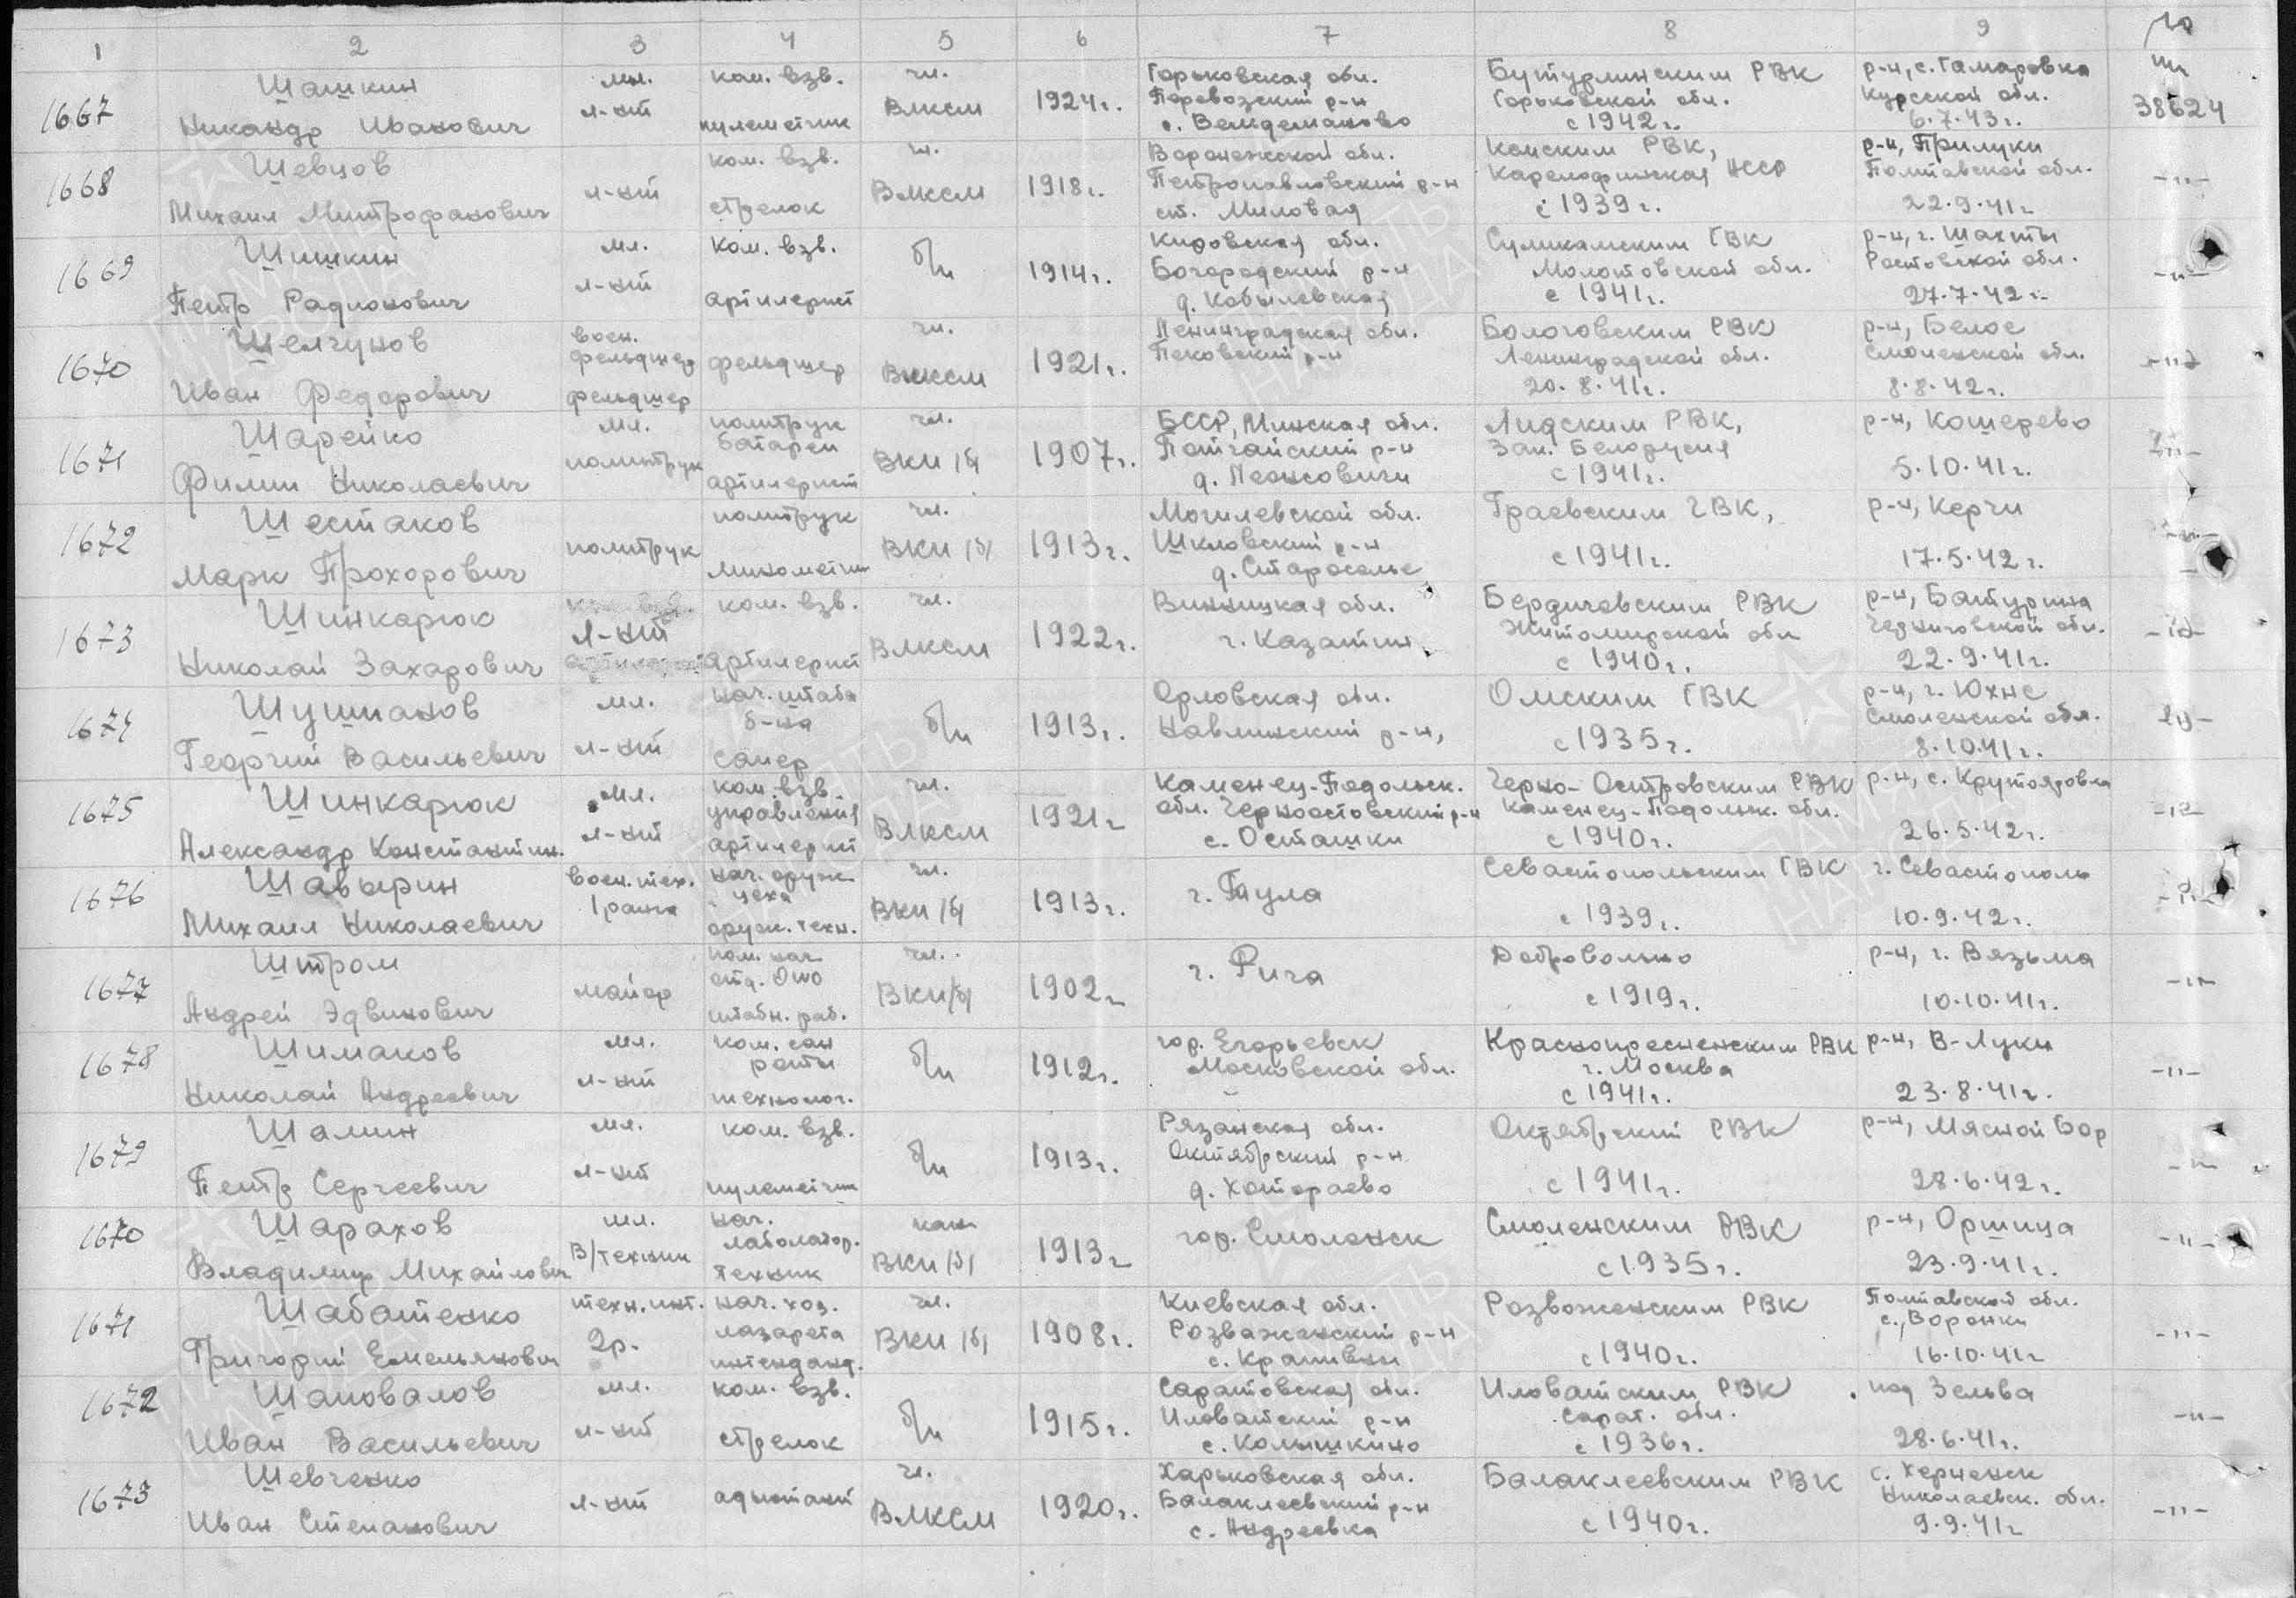 1 2 3 4 5 6 7 8 9 10
1667 Шашкин Никандр Иванович мл. л-нт ком. взв. пулеметчик чл. ВЛКСМ 1924г. Горьковская обл. Перевозский р-н с. Вельдеманово Бутурлинским РВК Горьковской обл. с 1942г. р-н, с. Гамаровка Курской обл. 6.7.43г. 38624
1668 Шевцов Михаил Митрофанович л-нт ком. взв. стрелок чл. ВЛКСМ 1918г. Воронежской обл. Петропавловский р-н ст. Миловая Кемским РВК, Карелофинская ССР с 1939г. р-н, Прилуки Полтавской обл. 22.9.41г -"-
1669 Шишкин Петр Радионович мл. л-нт ком. взв. артилерист б/п 1914г. Кировская обл. Богородский р-н д. Кобылевская Суликамским ГВК Молотовской обл. с 1941г. р-н, г. Шахты Ростовской обл. 27.7.42г. -"-
1670 Шелгунов Иван Федорович воен. фельдшер фельдшер фельдшер чл. ВЛКСМ 1921г. Ленинградская обл. Псковский р-н Бологовским РВК Ленинградской обл. 20.8.41г. р-н, Белое Смоленской обл. 8.8.42г. -"-
1671 Шарейко Филип Николаевич мл. политрук политрук батареи артилерист чл. ВКП/б/ 1907г. БССР, Минская обл. р-н д. Леонковичи Лидским РВК, Зап. Белорусия с 1941г. р-н, Кошерево 5.10.41г. -"-
1672 Шестаков Марк Прохорович политрук политрук минометчик чл. ВКП/б/ 1913г. Могилевской обл. Шкловский р-н д. Староселье Граевским ГВК, с 1941г. р-н, Керчи 17.5.42г. -"-
1673 Шинкарюк Николай Захарович л-нт ком. взв. артилерист чл. ВЛКСМ 1922г. Винницкая обл. г. Казатин Бердичевским РВК Житомирской обл с 1940г. р-н, Батурина Черниговской обл. 22.9.41г. -"-
1674 Шушпанов Георгий Васильевич мл. л-нт нач. штаба б-на сапер б/п 1913г. Орловская обл. Навлинский р-н, Омским ГВК с 1935г. р-н, г. Юхне Смоленской обл. 8.10.41г. -"-
1675 Шинкарюк Александр Константин. мл. л-нт ком. взв. управления артилерист чл. ВЛКСМ 1921г Каменец-Подольск. обл. Черноостовский р-н с. Осташки Черно-Островским РВК Каменец-Подольск. обл. с 1940г. р-н, с. Крутояровка 26.5.42г. -"-
1676 Шавырин Михаил Николаевич воен. тех. 1 ранга нач. оруж. цеха оруж. техн. чл. ВКП/б/ 1913г. г. Тула Севастопольским ГВК с 1939г. г. Севастополь 10.9.42г. -"-
1677 Штром Андрей Эдвинович майор пом. нач отд. штабн. раб. чл. ВКП/б/ 1902г г. Рига Добровольно с 1919г. р-н, г. Вязьма 10.10.41г. -"-
1678 Шимаков Николай Андреевич мл. л-нт ком. сан роты технолог. б/п 1912г. гор. Егорьевск Московской обл. Краснопресненским РВК г. Москва с 1941г. р-н, В-Луки 23.8.41г. -"-
1679 Шамин Петр Сергеевич мл. л-нт ком. взв. пулеметчик б/п 1913г. Рязанская обл. Октябрский р-н д. Хотараево Октябрский РВК с 1941г. р-н, Мясной Бор 28.6.42г. -"-
1670 Шарахов Владимир Михайлович мл. в/техник нач. лаболатор. техник кан ВКП/б/ 1913г гор. Смоленск Смоленским РВК с 1935г. р-н, Оршица 23.9.41г. -"-
1671 Шабатенко Григорий Емельянович техн. инт. 2р. нач. хоз. лазарета интенданд. чл. ВКП/б/ 1908г. Киевская обл. Розваженский р-н с. Крапивни Розваженским РВК с 1940г. Полтавской обл. с. Воронки 16.10.41г -"-
1672 Шаповалов Иван Васильевич мл. л-нт ком. взв. стрелок б/п 1915г. Саратовская обл. Иловатский р-н с. Колышкино Иловатским РВК Сарат. обл. с 1936г. под Зельва 28.6.41г. -"-
1673 Шевченко Иван Степанович л-нт адьютант чл. ВЛКСМ 1920г. Харьковская обл. Балаклеевский р-н с. Андреевка Балаклеевским РВК с 1940г. Николаевск. обл. 9.9.41г -"-